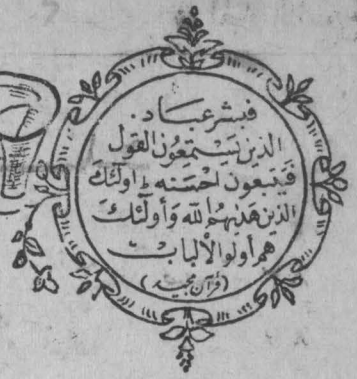 فبشر عباد.
الذين يستمعون القول
فيتبعون احسنه ط اولئك
الذين هديهم الله و أولئك
هم أولوا الألباب
(قرآن مجيد)